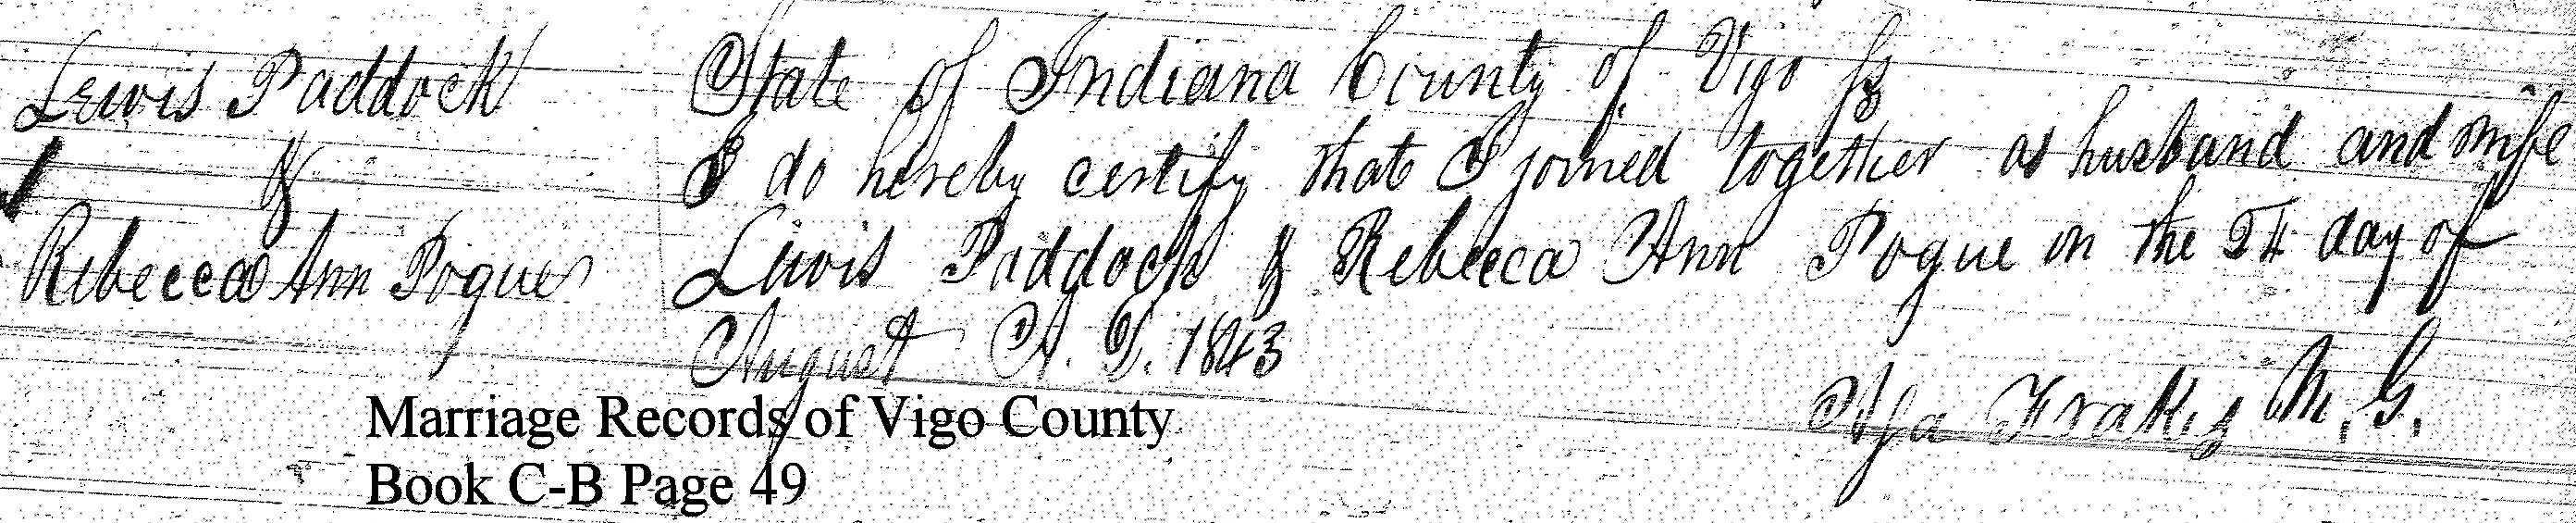 Lewis Paddock
&
Rebecca Ann Pogue
State of Indiana County of Vigo ss
I do hereby certify that I joined together as husband and wife
Lewis Paddock & Rebecca Ann Pogue on the 24 day of
August A. D. 1843
Asa Frakes M. G.
Marriage Records of Vigo County
Book C-B Page 49